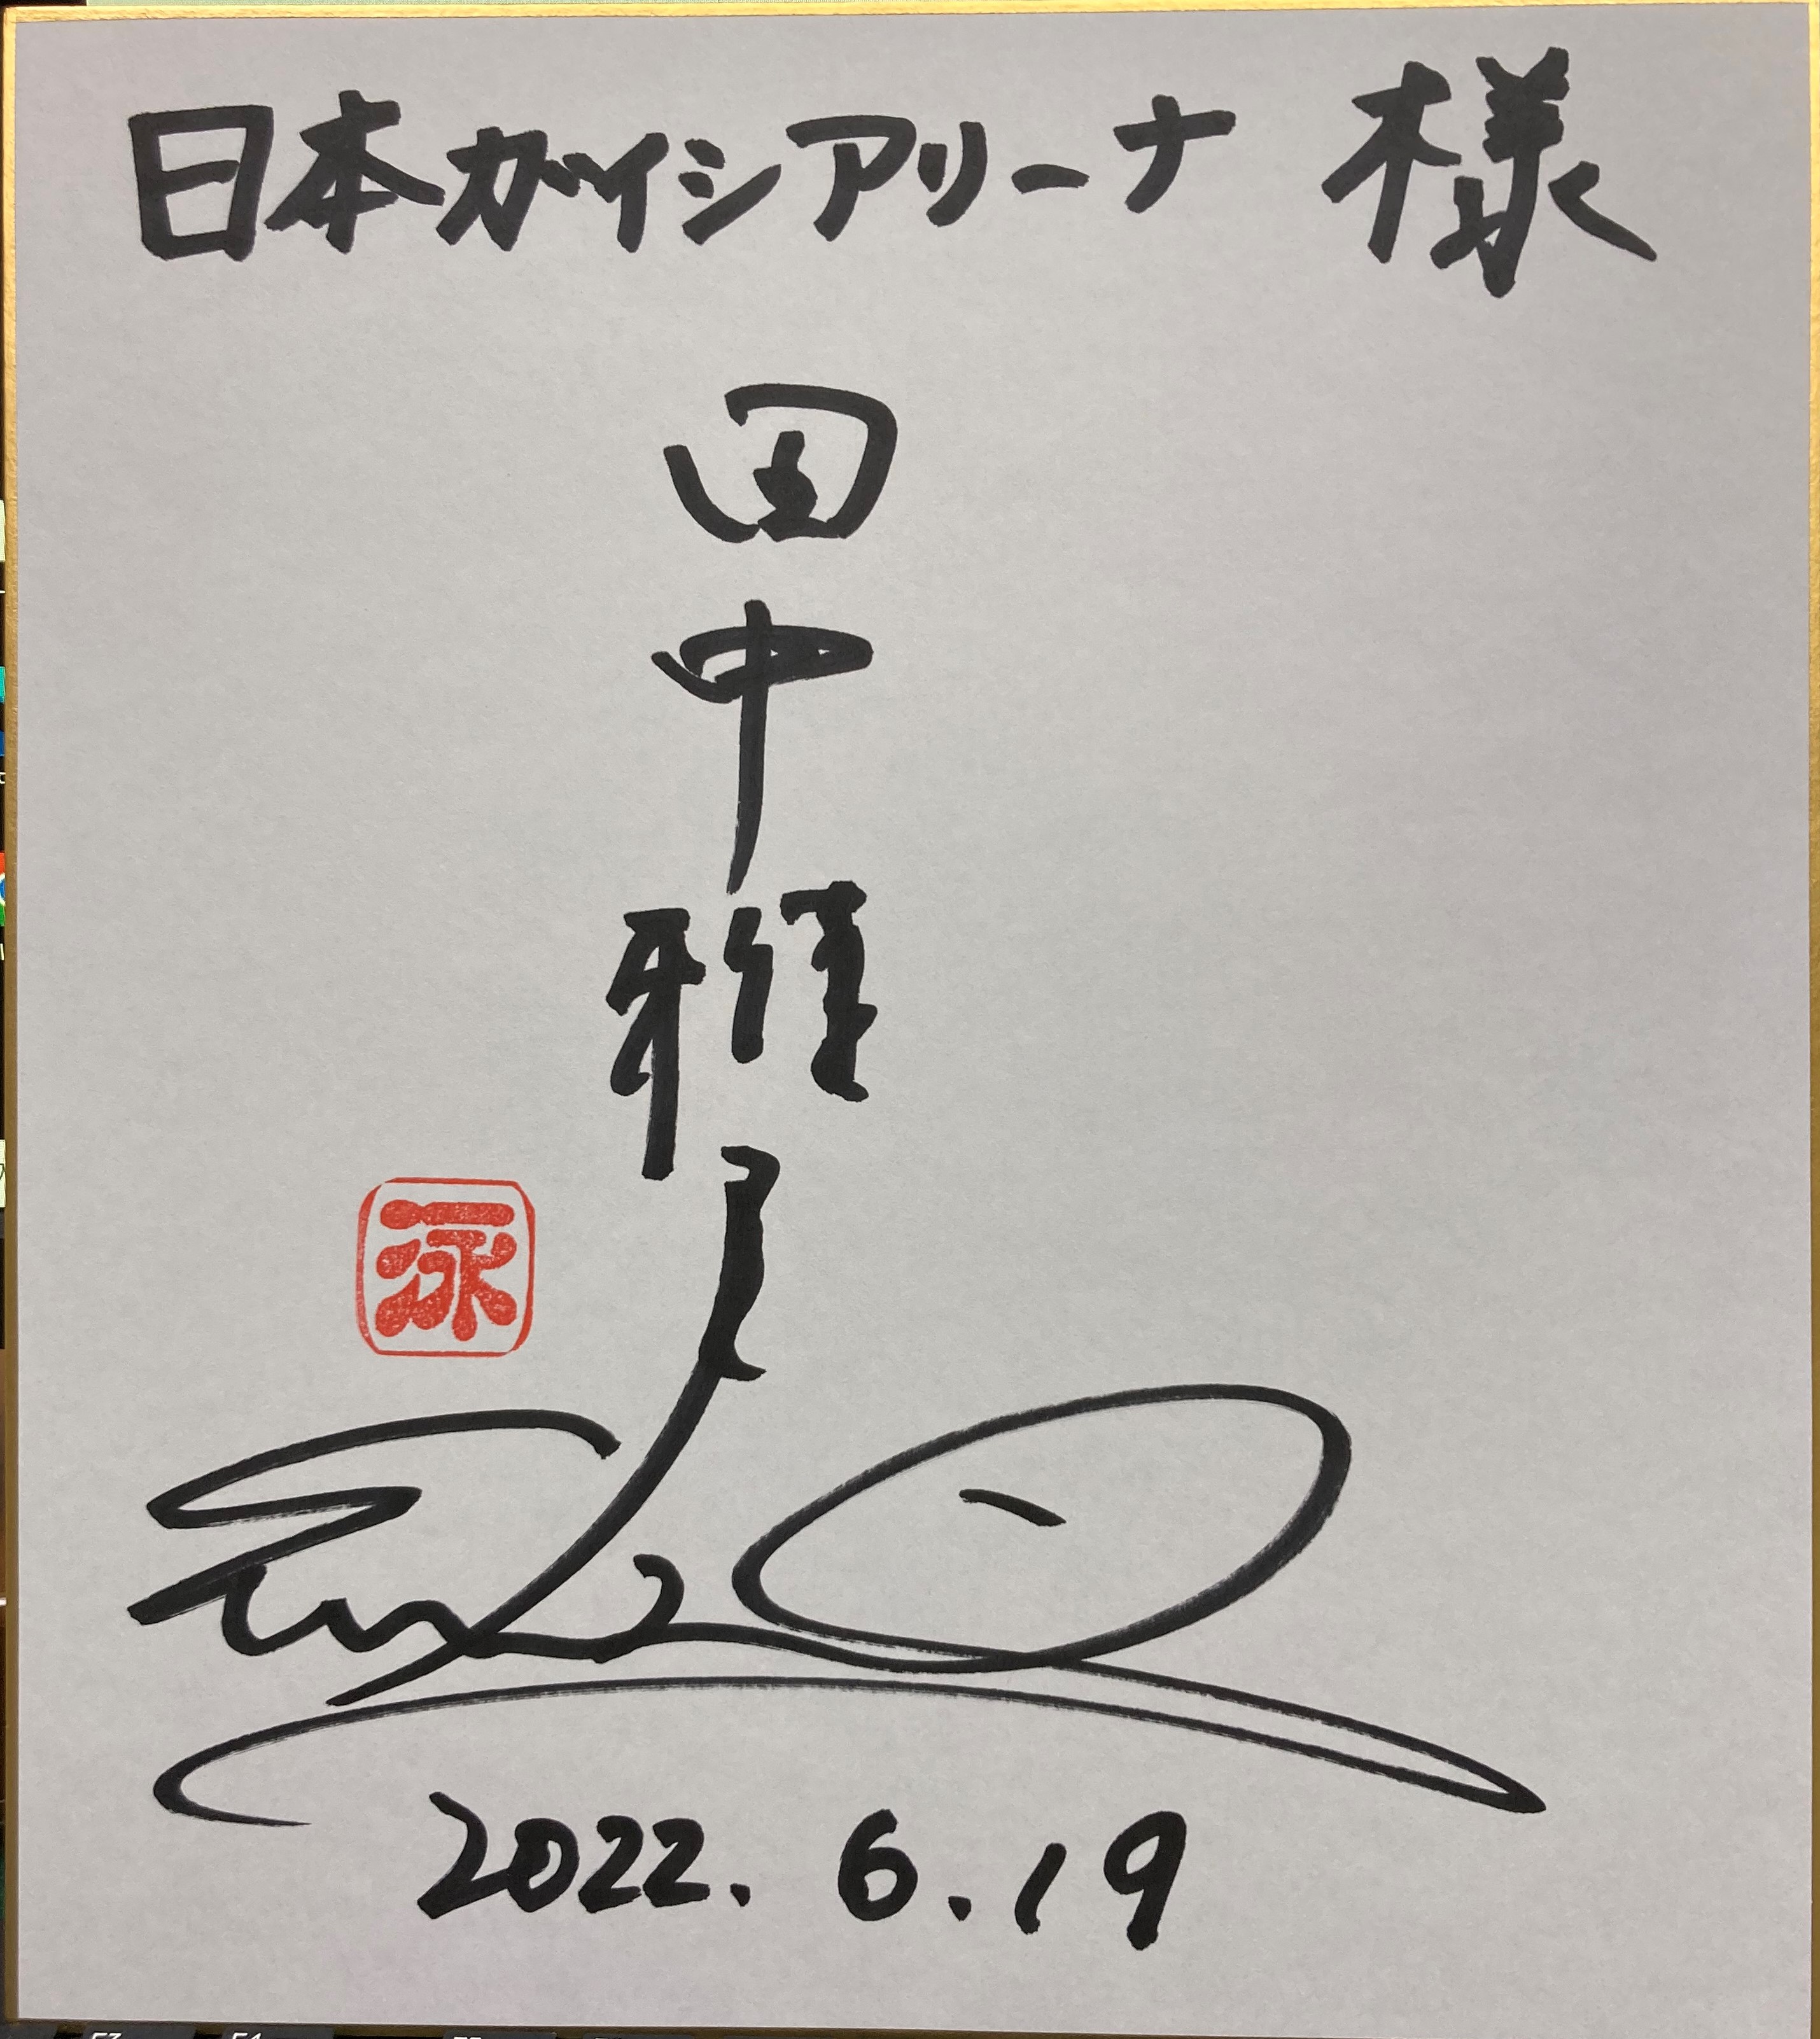 日本ガイシアリーナ 様
田中雅美
泳
2022.6.19